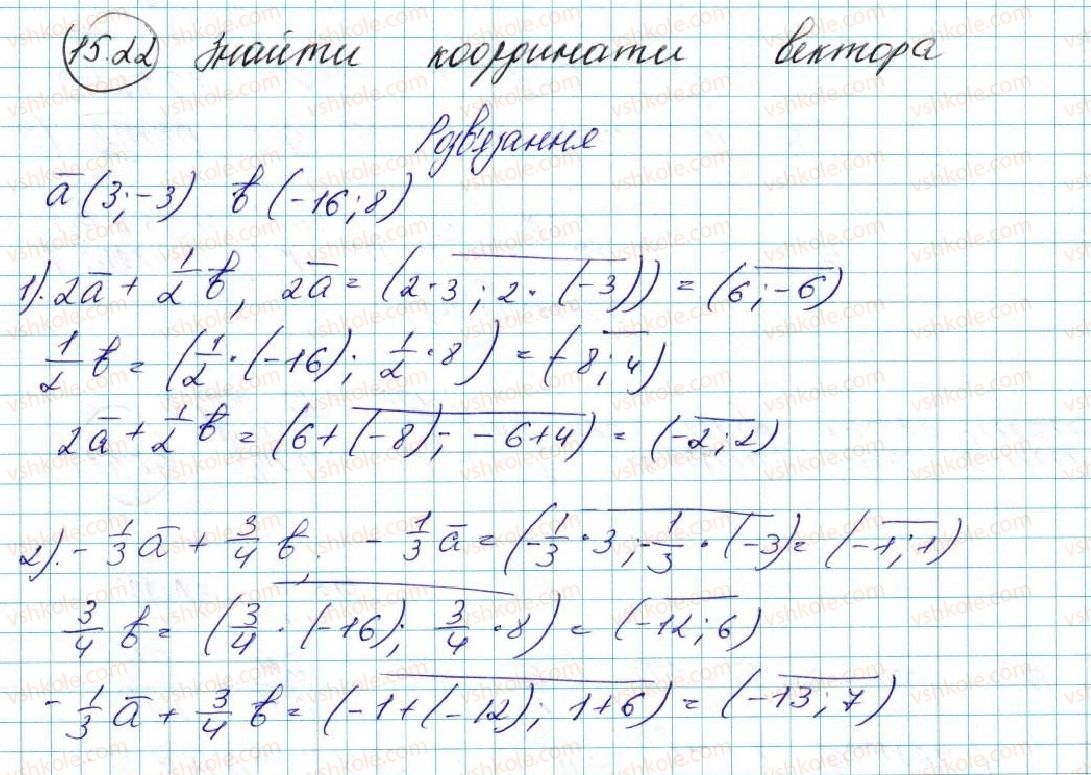 15.22 Знайти координати вектора
Розв'язання
a̅ (3; -3) b̅ (-16; 8)
1). 2a̅ + 1/2 b̅, 2a̅ = (2·3; 2·(-3)) = (6; -6)
1/2 b̅ = (1/2·(-16); 1/2·8) = (-8; 4)
2a̅ + 1/2 b̅ = (6+(-8); -6+4) = (-2; 2)
2). - 1/3 a̅ + 3/4 b̅, - 1/3 a̅ = (-1/3·3; -1/3·(-3) = (-1; 1)
3/4 b̅ = (3/4·(-16); 3/4·8) = (-12; 6)
- 1/3 a̅ + 3/4 b̅ = (-1+(-12); 1+6) = (-13; 7)